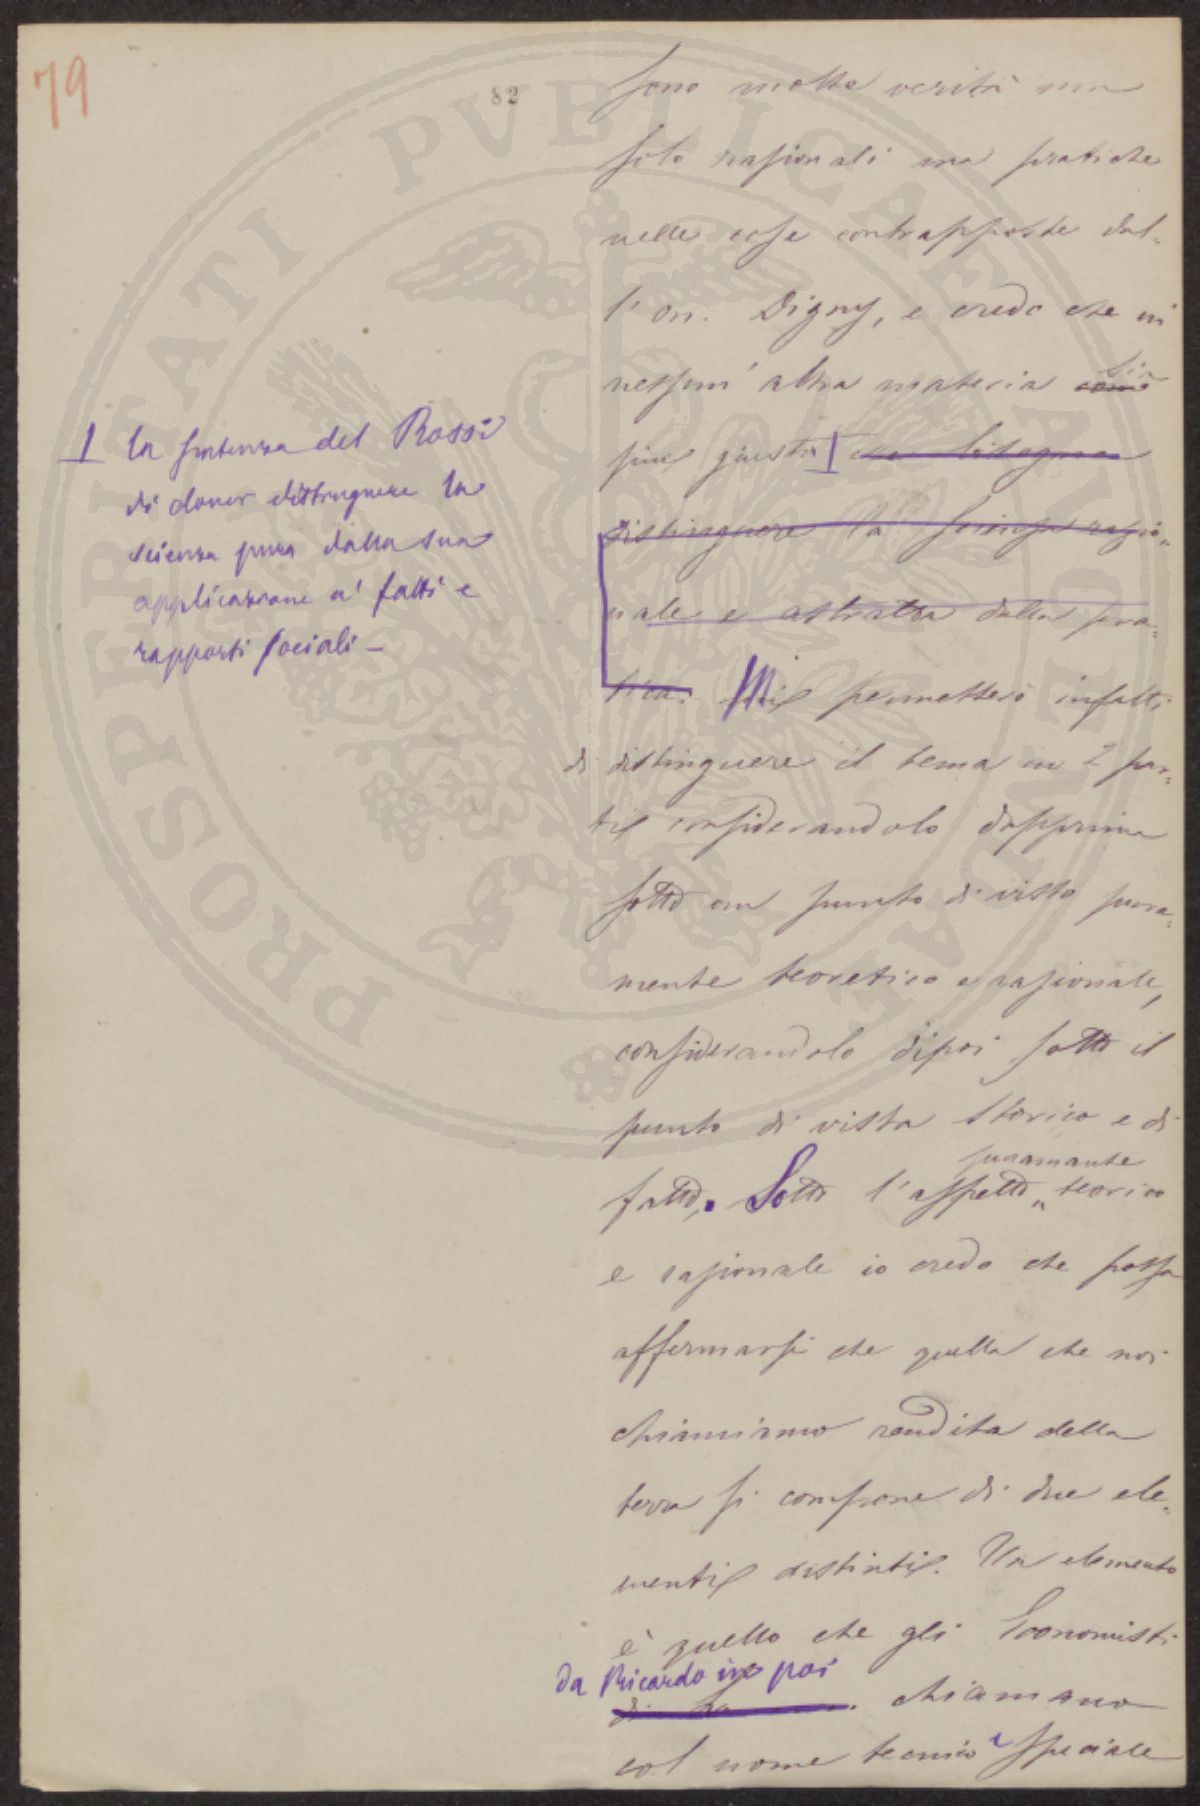 79
82
sono molte verità non
solo razionali ma pratiche
nelle cose contrapposte dal-
l'on. Digny, e credo che in
nessun'altra materia come sia
più giusta | che bisogna
distinguere la scienza razio-
nale e astratta dalla pra-
tica. Mi permetterò infatti
di distinguere il tema in 2 par-
ti considerandolo dapprima
sotto un punto di vista pura-
mente teoretico e razionale,
considerandolo dipoi sotto il
punto di vista storico e di
puramente
fatto. Sotto l'aspetto teorico
e razionale io credo che possa
affermarsi che quella che noi
chiamiamo rendita della
terra si compone di due ele-
menti distinti. Un elemento
è quello che gli Economisti
da Ricardo in poi
chiamano
col nome tecnico e speciale
| la sentenza del Rossi
di dover distinguere la
scienza pura dalla sua
applicazione a' fatti e
rapporti sociali –
PROSPERITATI PVBLICAE